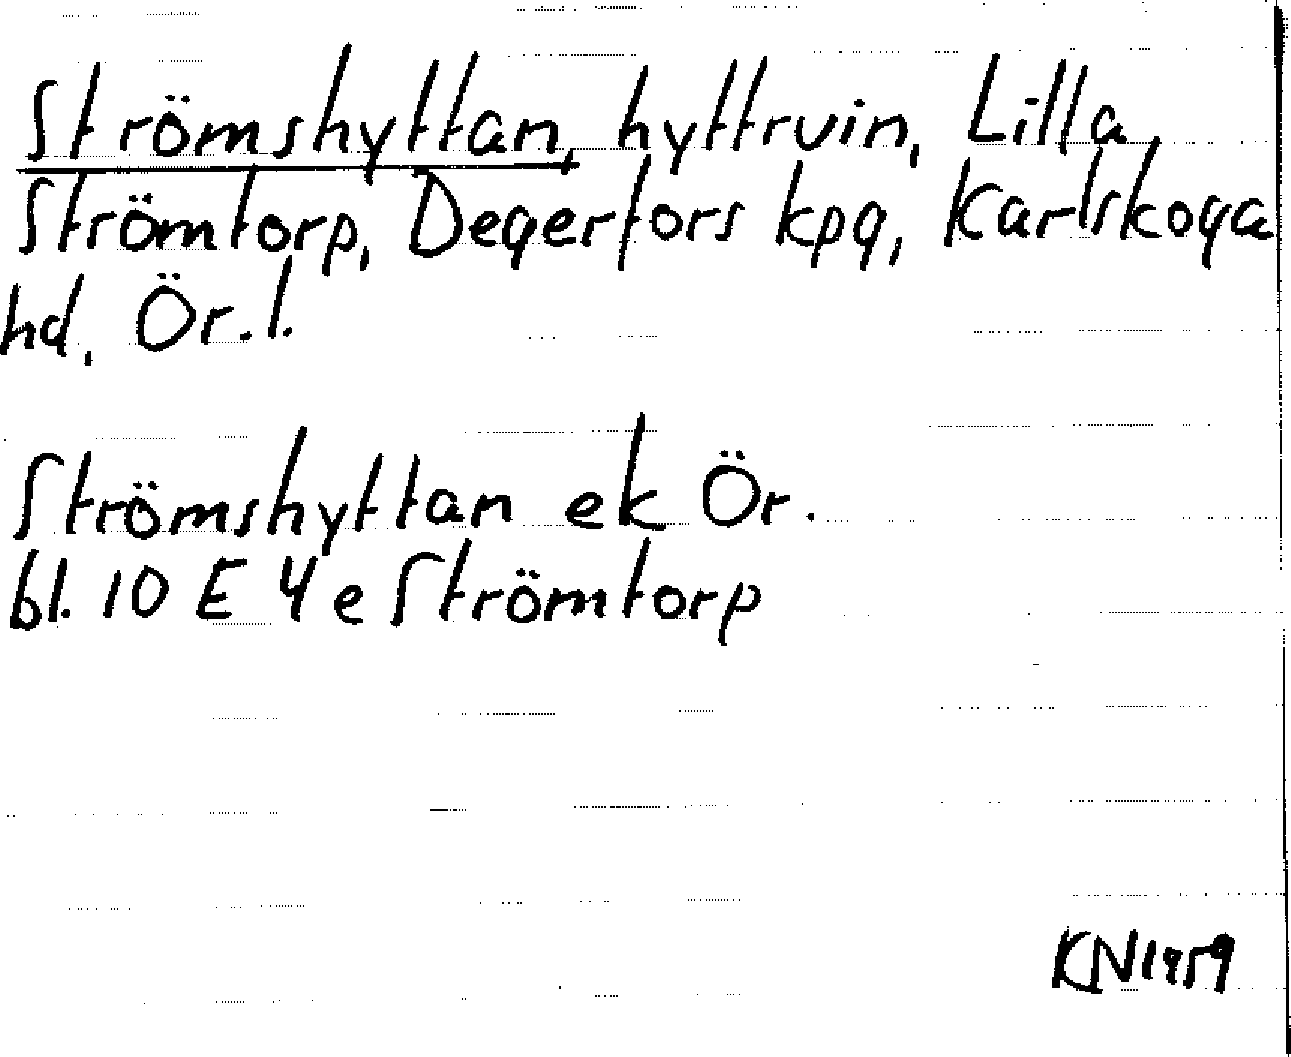 Strömshyttan, hyttruin, Lilla
Strömtorp, Degerfors kpg, Karlskoga
hd, Ör. l.
Strömshyttan ek Ör.
bl. 10 E 4 e Strömtorp
KN 1959